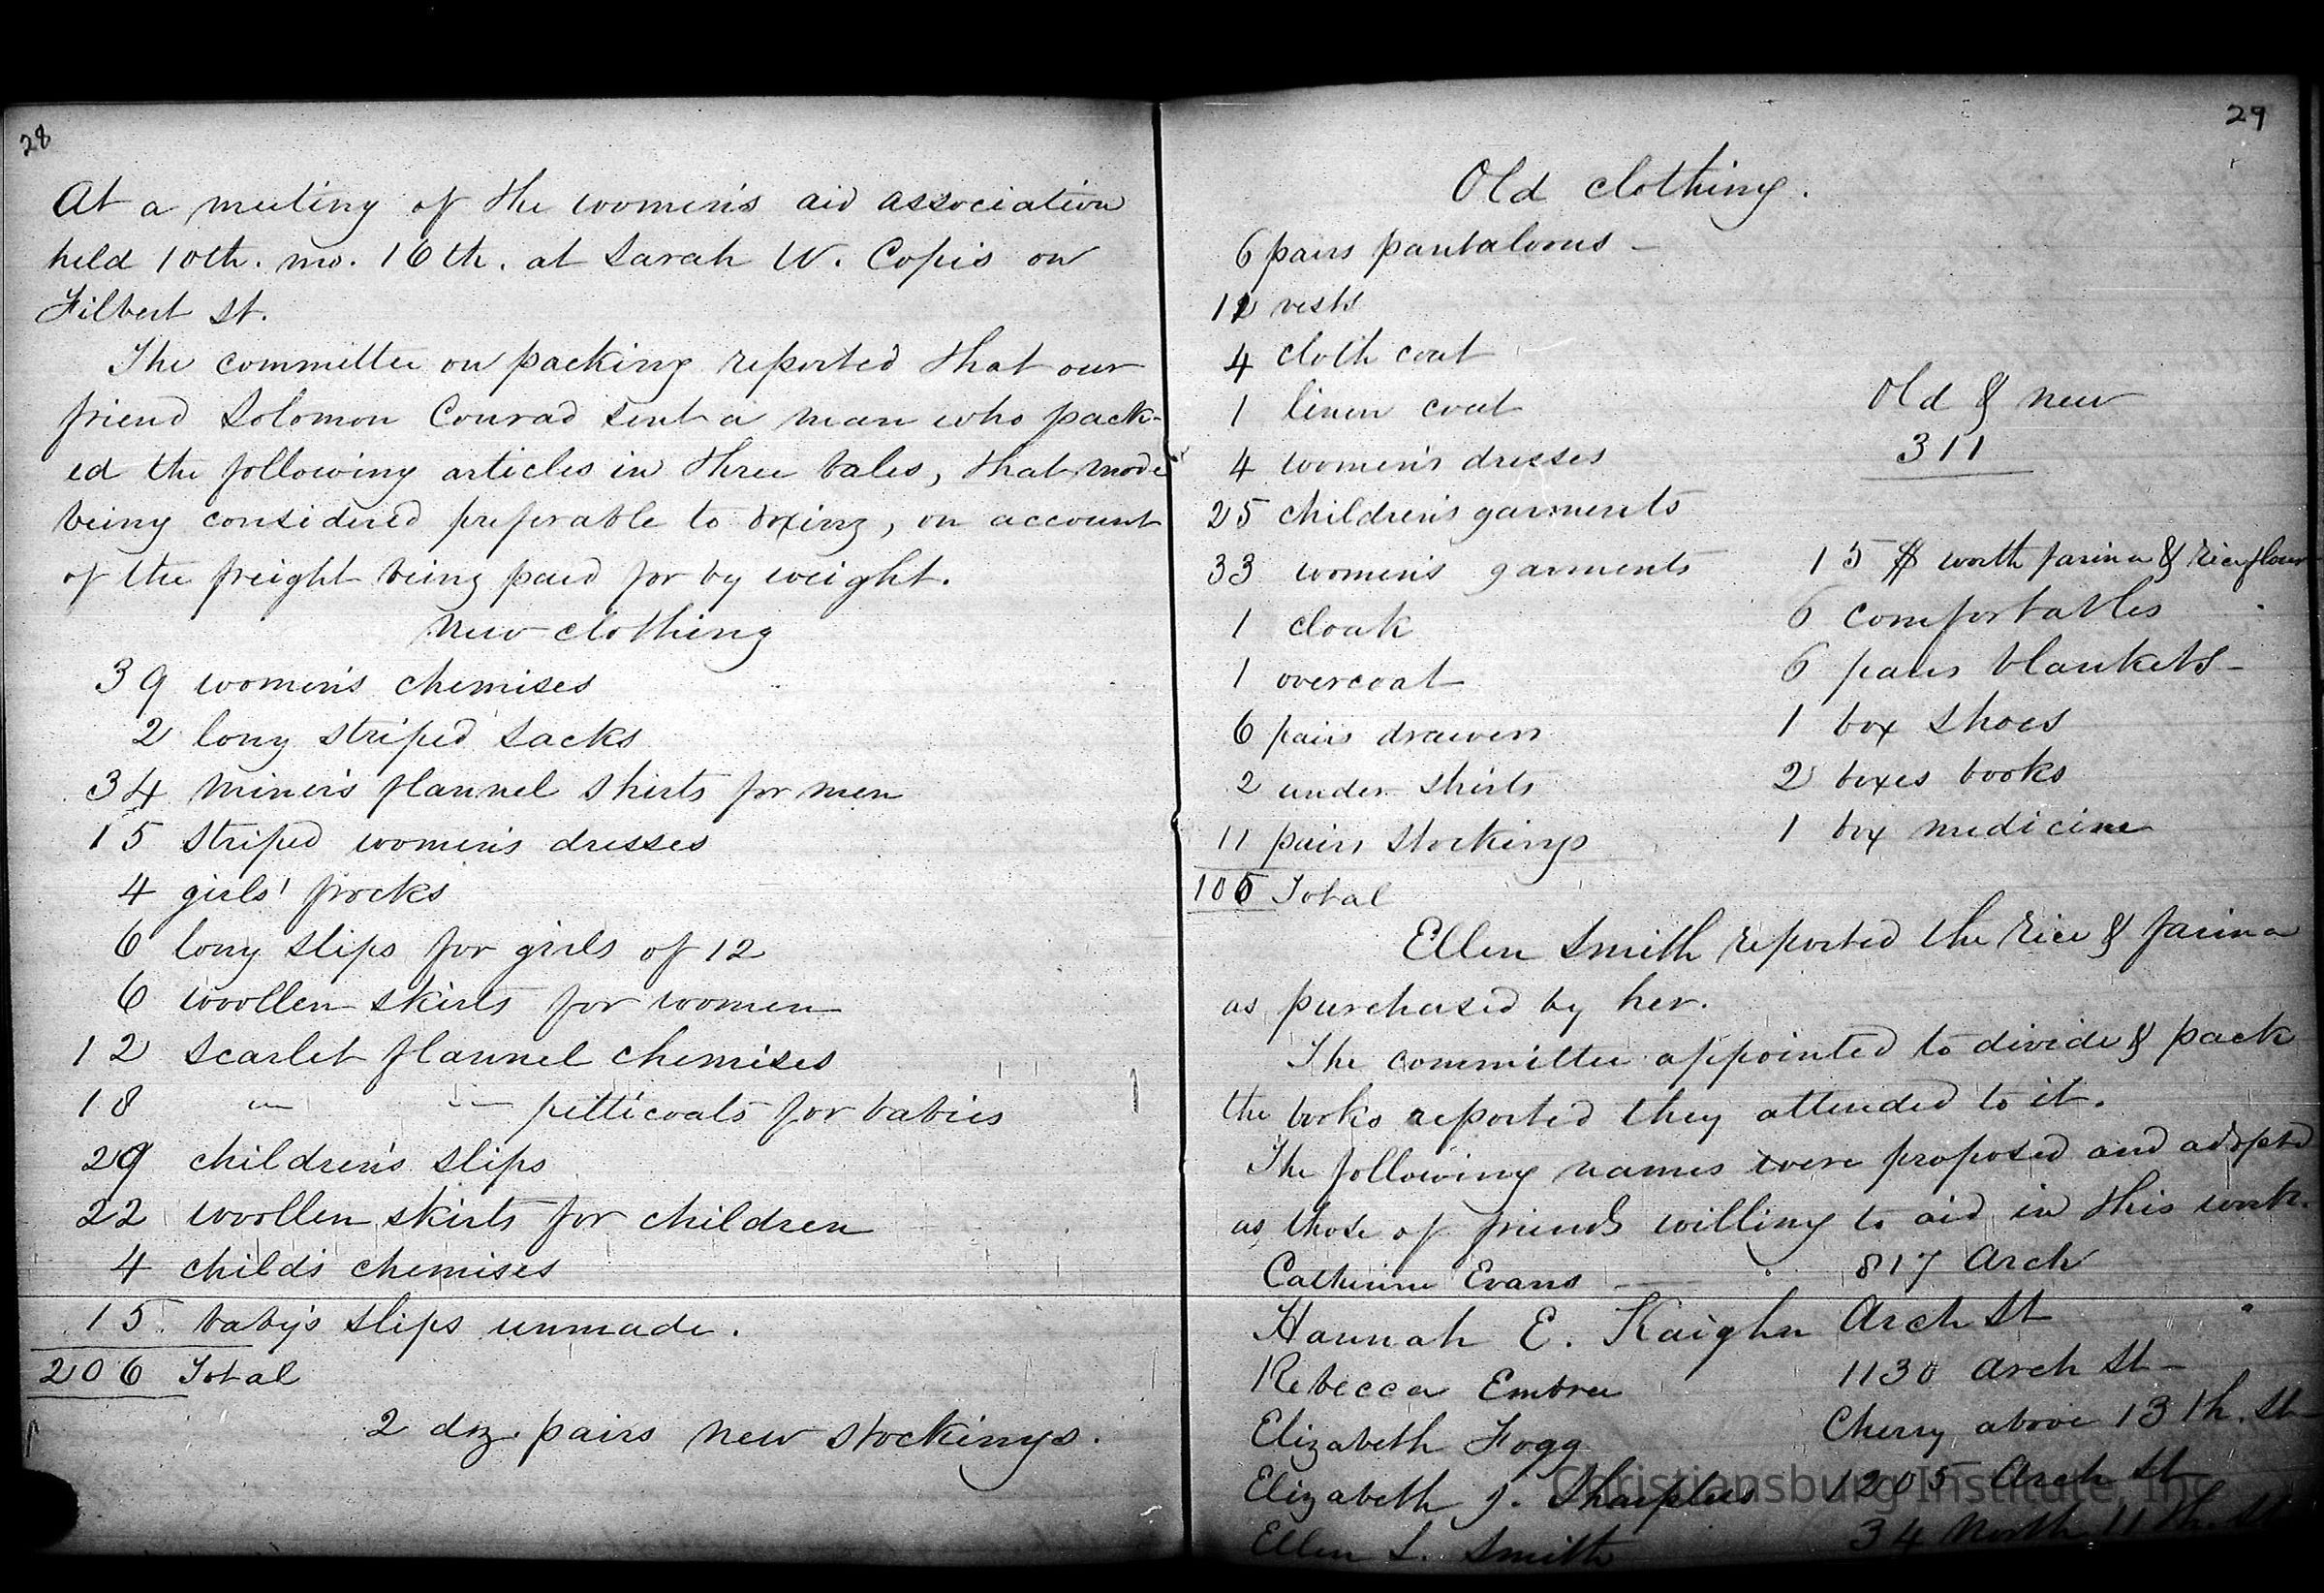 28
At a meeting of the women's aid association
held 10th. mo. 16th. at Sarah W. Copis on
Filbert St.
The committee on packing reported that our
friend Solomon Conrad sent a man who pack-
ed the following articles in three bales, that mode
being considered preferable to boxing, on account
of the freight being paid for by weight.
New clothing
39 women's chemises
2 long striped sacks
34 miner's flannel shirts for men
15 striped women's dresses
4 girls' frocks
6 long slips for girls of 12
6 woollen skirts for women
12 scarlet flannel chemises
18 " " petticoats for babies
29 children's slips
22 woollen skirts for children
4 child's chemises
15 baby's slips unmade.
206 Total
2 doz. pairs new stockings.
29
Old clothing.
6 pairs pantaloons -
12 vests
4 cloth coat
1 linen coat
4 women's dresses
25 children's garments
33 women's garments
1 cloak
1 overcoat
6 pairs drawers
2 under shirts
11 pairs stockings
105 Total
Old & new
311
15 $ worth farina & rice flour
6 comfortables
6 pairs blankets -
1 box shoes
2 boxes books
1 box medicine
Ellen Smith reported the rice & farina
as purchased by her.
The committee appointed to divide & pack
the books reported they attended to it.
The following names were proposed and adopted
as those of friends willing to aid in this work.
Catherine Evans — 817 Arch
Hannah E. Kaighn Arch St
Rebecca Embree 1130 Arch St -
Elizabeth Fogg Cherry above 13th. St
Elizabeth J. Sharpless 1205 Arch St
Ellen L. Smith 34 North 11th. St
Christiansburg Institute, Inc.